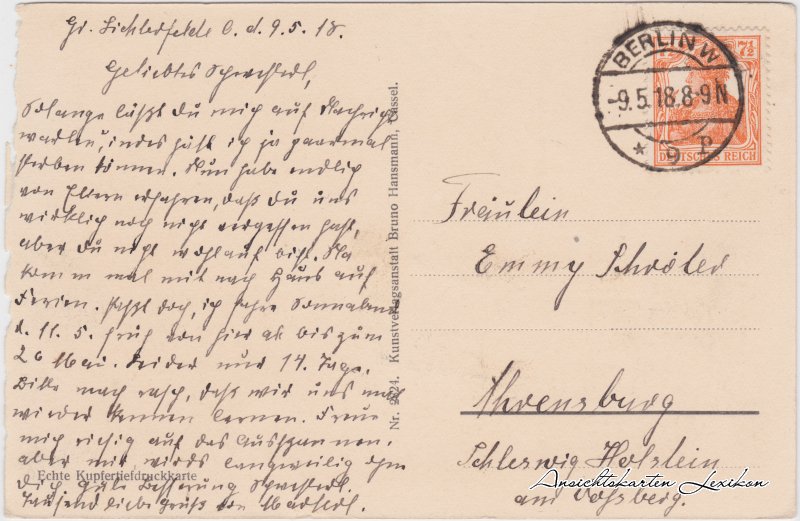 Gr. Lichterfelde O. d. 9.5.18.
Geliebtes Schwesterl,
Solange läßt du mich auf Nachricht
warten, indes hätt ich ja paarmal
sterben können. Nun habe endlich
von Eltern erfahren, daß du uns
wirklich noch nicht vergessen hast,
aber du nicht wohlauf bist. Na
komm mal mit nach Haus auf
Ferien. paßt doch, ich fahre Sonnabend
d. 11.5. früh von hier ab bis zum
26 Mai. Leider nur 14 Tage.
Bitte mach rasch, daß wir uns mal
wieder kennen lernen. Freue
mich riesig auf das Ausspannen.
aber mit wirds langweilig ohne
Dich gute Besserung Schwesterl.
Tausend liebe grüße von
Echte Kupfertiefdruckkarte
Nr. 9424. Kunstverlagsanstalt Bruno Hansmann, Cassel.
BERLIN W
-9.5.18.8-9N
* 9 P
7½
DEUTSCHES REICH
Fräulein
Emmy Schröter
Ahrensburg
Schleswig Holstein
am
Ansichtskarten Lexikon